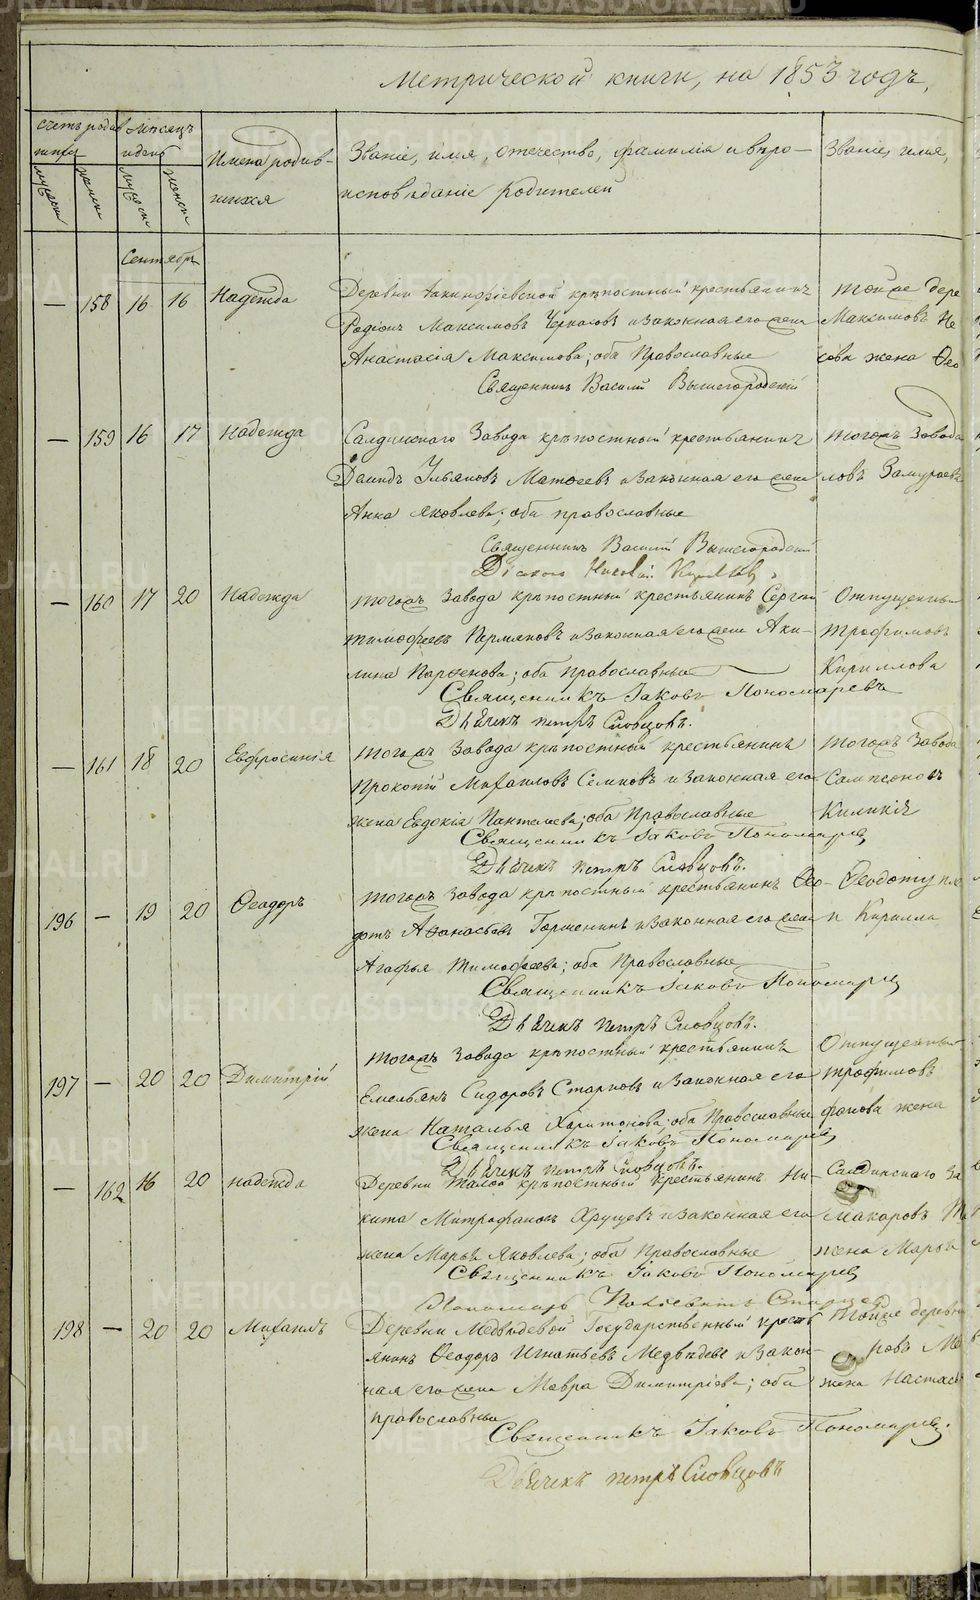 Метрической книги, на 1853 годъ,
Счетъ родив
шихся
Мѣсяцъ
и день
мужеск
женск
мужеск
женск
Имена родив-
шихся
Званіе, имя, отечество, фамилія и вѣро-
исповѣданіе родителей
Званіе, имя,
Сентябрь
— 158 16 16 Надежда
Деревни Акинфіевской крѣпостный крестьянинъ
Родіонъ Максимовъ Черкасовъ и законная его жена
Анастасія Максимова; оба Православные
Священникъ Василій Вышегородскій
тойже дере
Максимовъ Не
сова жена Ѳео
— 159 16 17 Надежда
Салдинскаго Завода крѣпостный крестьянинъ
Давидъ Ульяновъ Матѳеевъ и законная его жена
Анна Яковлева; оба православные
Священникъ Василій Вышегородскій
Діаконъ
тогожъ Завода
ловъ Замураева
— 160 17 20 Надежда
тогожъ Завода крѣпостный крестьянинъ Сергей
Тимофеевъ Пермяковъ и законная его жена Аки-
лина Парѳенова; оба православные
Священникъ Іаковъ Пономаревъ
Дьячекъ Петръ Словцовъ.
Отпущенный
Трофимовъ
Кириллова
— 161 18 20 Евфросинія
тогожъ Завода крѣпостный крестьянинъ
Прокопій Михаиловъ Семковъ и законная его
жена Евдокія Пантелеева; оба Православные
Священникъ Іаковъ Пономаревъ
Дьячекъ Петръ Словцовъ.
тогожъ Завода
Сампсонов
Киликія
196 — 19 20 Ѳеодоръ
тогожъ Завода крѣпостный крестьянинъ Ѳео-
дотъ Аѳанасьевъ Горшенинъ и законная его жена
Агафья Тимофеева; оба Православные
Священникъ Іаковъ Пономаревъ
Дьячекъ Петръ Словцовъ.
Ѳеодоту
и Кирилла
197 — 20 20 Димитрій
тогожъ Завода крѣпостный крестьянинъ
Емельянъ Сидоровъ Старковъ и законная его
жена Наталья Харитонова; оба Православные
Священникъ Іаковъ Пономаревъ
Дьячекъ Петръ Словцовъ.
Отпущенный
Трофимовъ
фанова жена
— 162 16 20 Надежда
Деревни крѣпостный крестьянинъ Ни-
кита Митрофановъ Хрущевъ и законная его
жена Марья Яковлева; оба Православные
Священникъ Іаковъ Пономаревъ
Пономарь Старцевъ
Салдинскаго За
Макаровъ
жена Марья
198 — 20 20 Михаилъ
Деревни Медвѣдевой Государственный кресть
янинъ Ѳеодоръ Игнатьевъ Медвѣдевъ и закон-
ная его жена Мавра Димитріева; оба
православные
Священникъ Іаковъ Пономаревъ.
Дьячекъ Петръ Словцовъ
тойже деревни
ровъ Ме
жена Настась